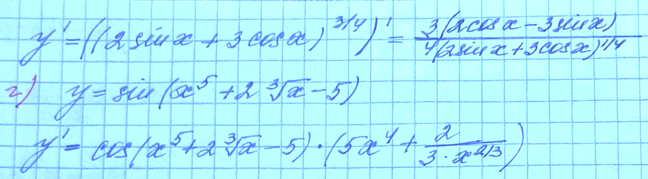 y' = ((2sinx + 3cosx)^{3/4})' = \frac{3(2cosx - 3sinx)}{4(2sinx + 3cosx)^{1/4}}
г) y = sin(x^5 + 2∛x - 5)
y' = cos(x^5 + 2∛x - 5) · (5x^4 + \frac{2}{3 · x^{2/3}})